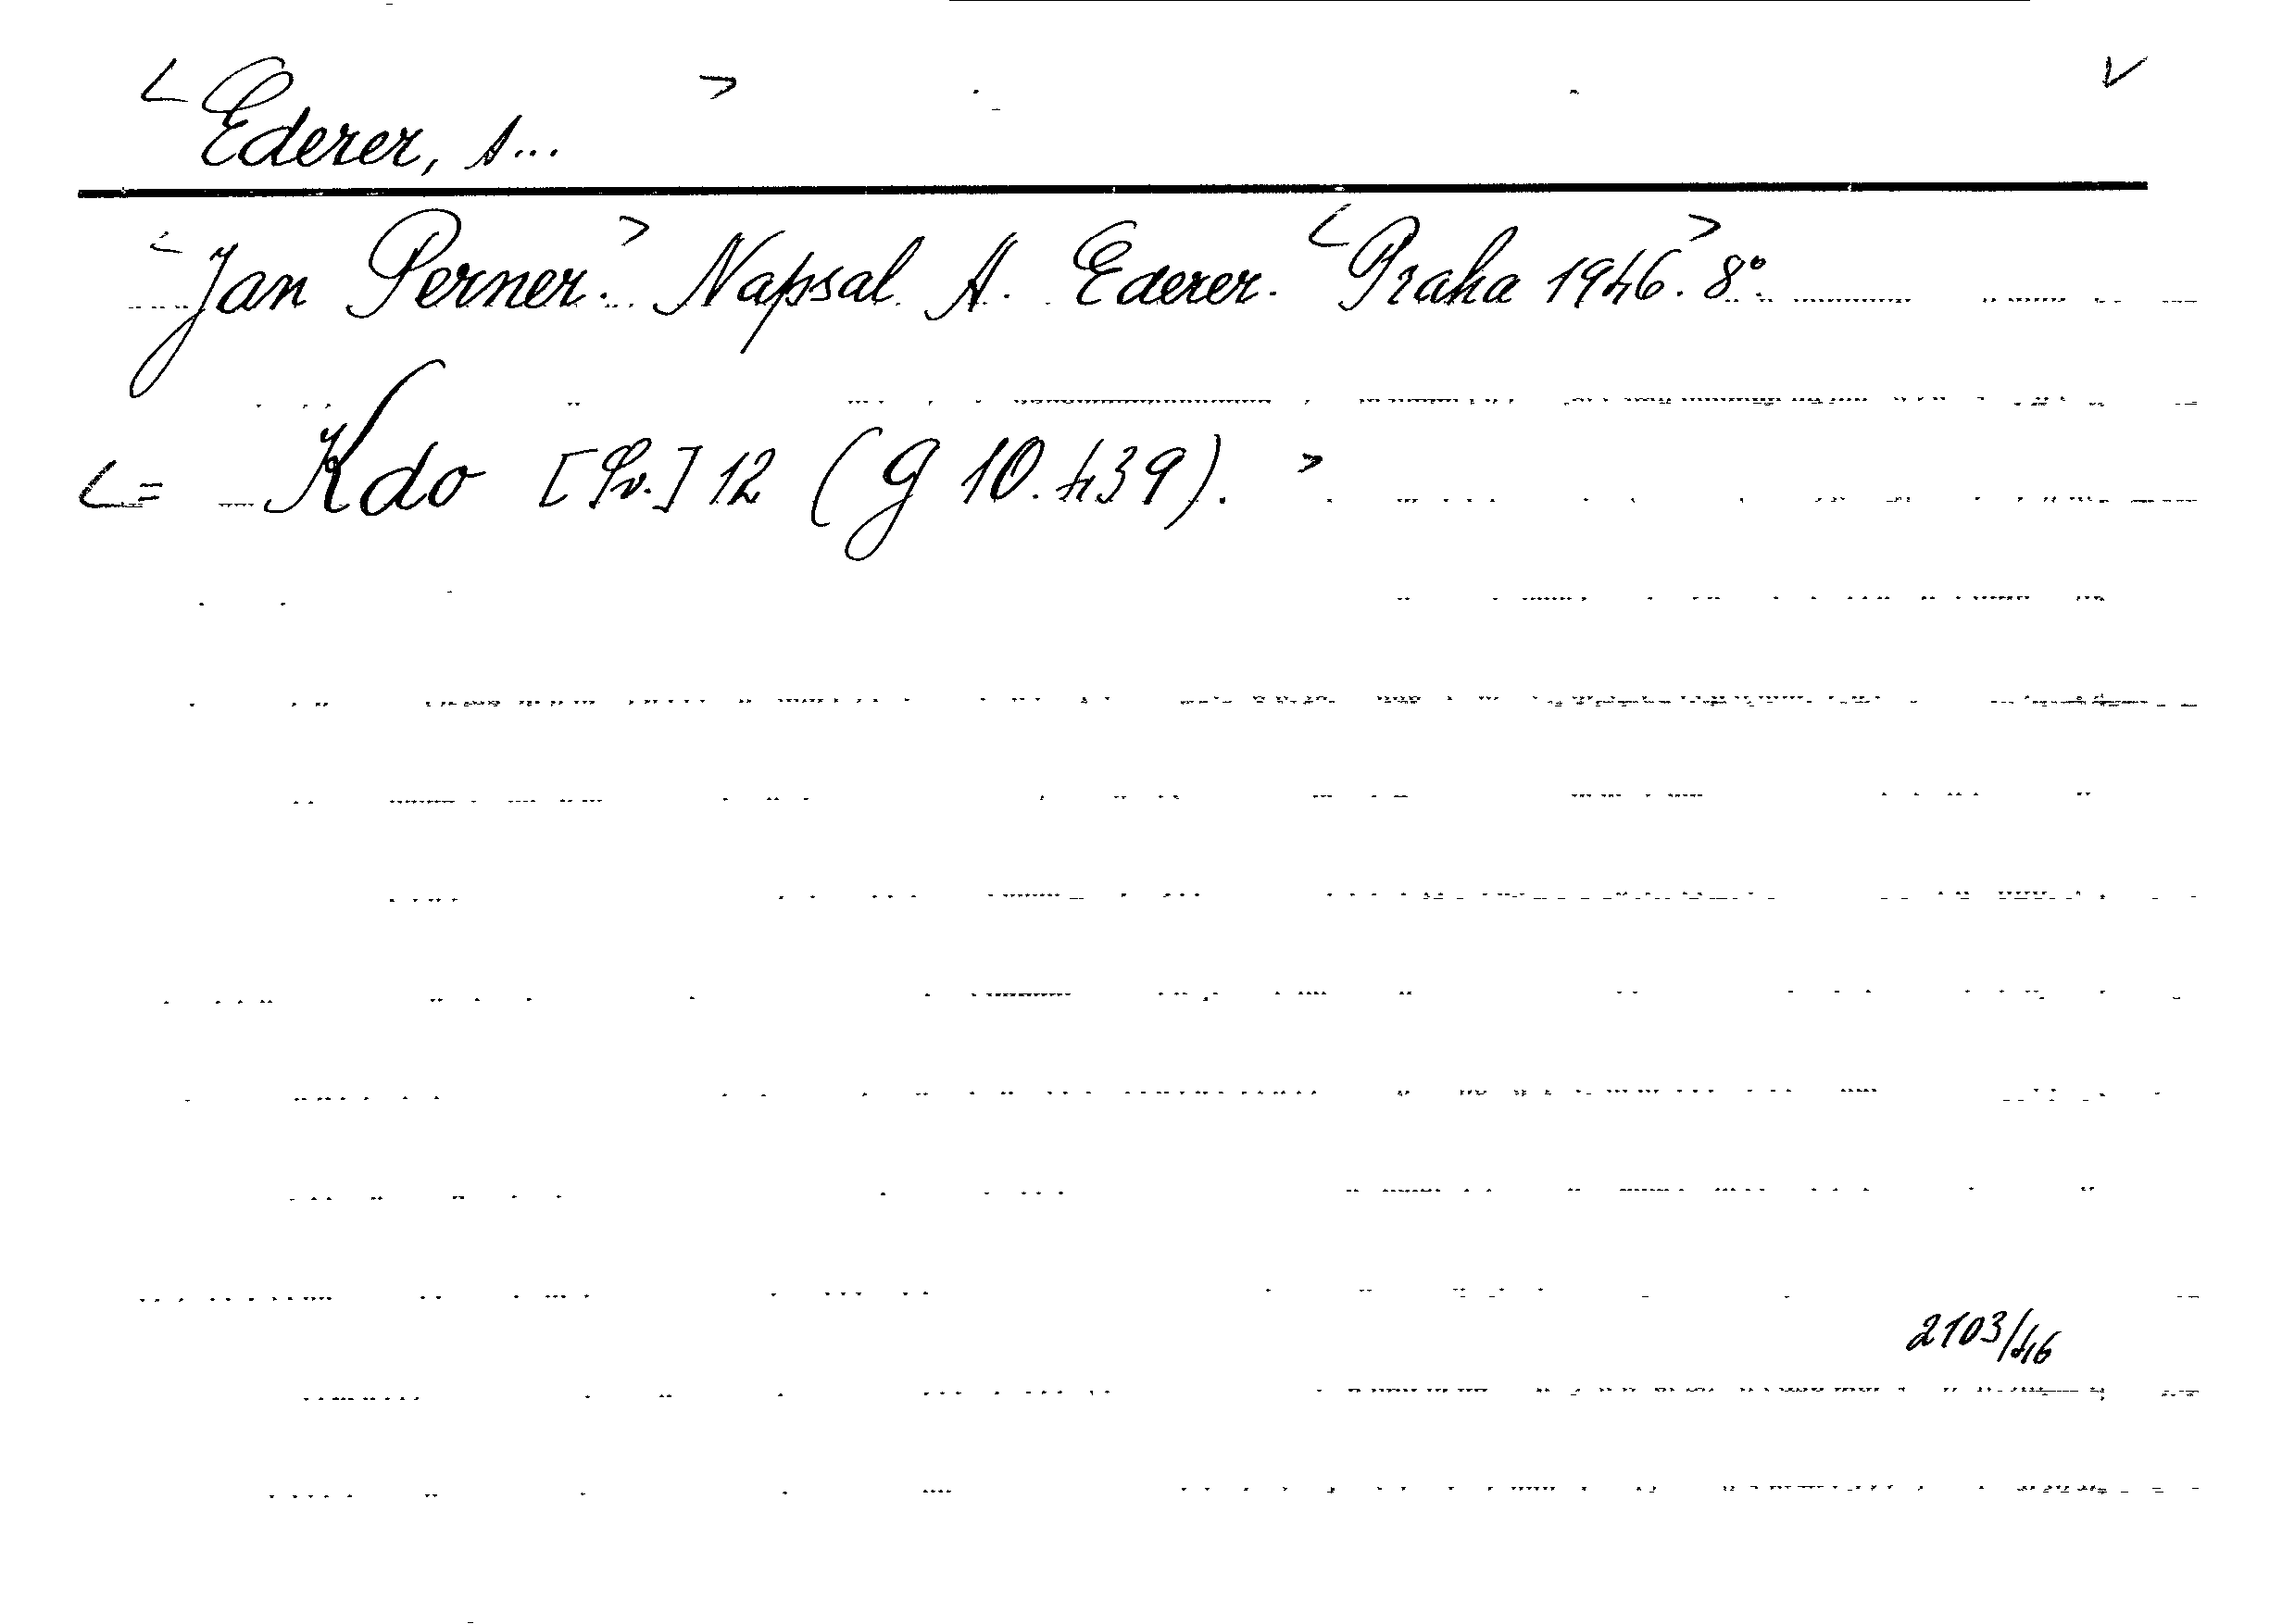 < Ederer, A... > V
< Jan Perner. > Napsal A. Ederer. < Praha 1946. > 8°.
< = Kdo [Sv.] 12 (G 10.439). >
2103/46